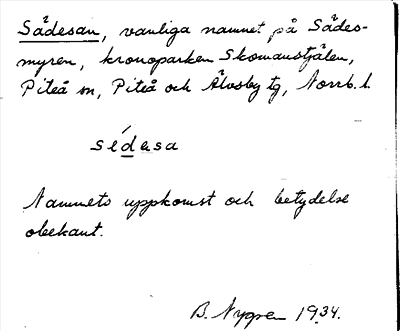 Sådesan, vanliga namnet på Sådes-
myren, kronoparken Skomanstjälen,
Piteå sn, Piteå och Älvsby tg, Norrb. l.
sédəsa
Namnets uppkomst och betydelse
obekant.
B. Nygren 1934.